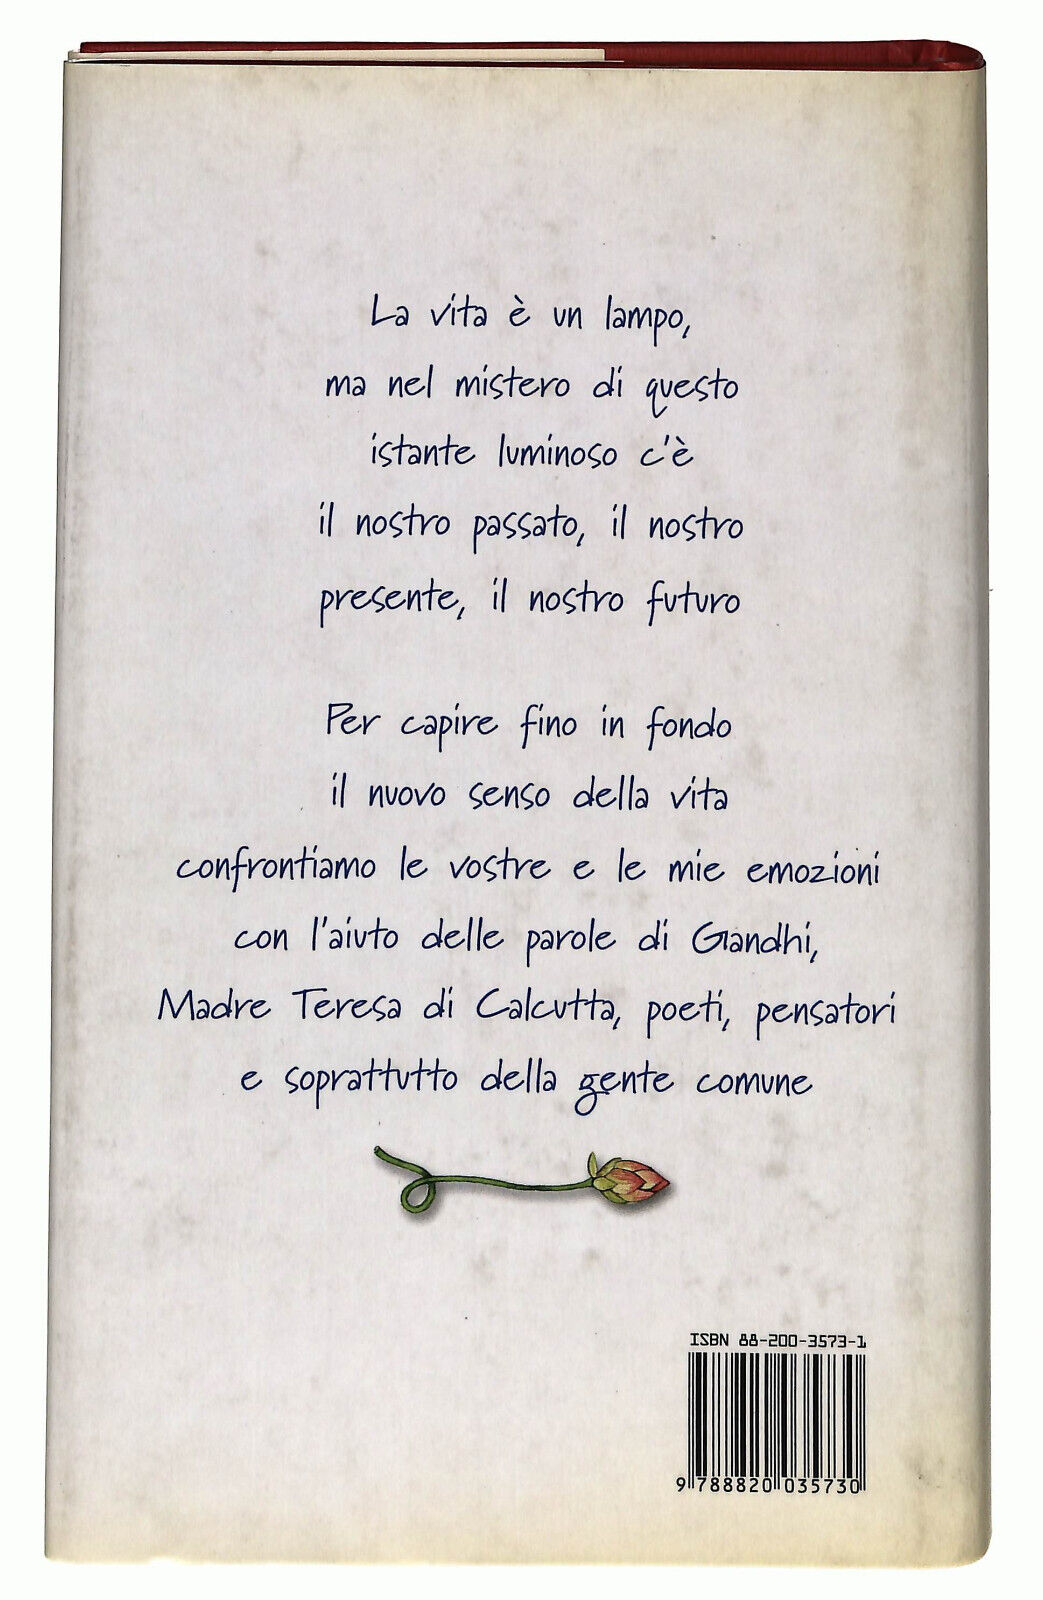 La vita è un lampo,
ma nel mistero di questo
istante luminoso c'è
il nostro passato, il nostro
presente, il nostro futuro
Per capire fino in fondo
il nuovo senso della vita
confrontiamo le vostre e le mie emozioni
con l'aiuto delle parole di Gandhi,
Madre Teresa di Calcutta, poeti, pensatori
e soprattutto della gente comune
ISBN 88-200-3573-1
9 788820 035730